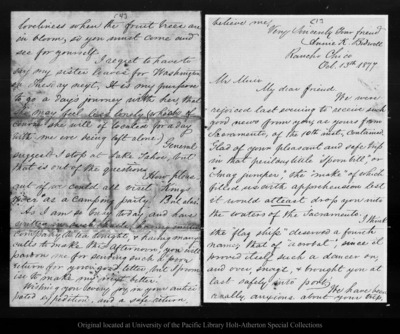 loveliness when the fruit trees are
in bloom, so you must come and
see for yourself.
I regret to have to
say my sister leaves for Washington
on Thursday next. It is my purpose
to go a days journey with her, that
she may feel less lonely
with me ere being left alone.) Gen
General
suggests I stop at Lake Tahoe, but
that is out of the question.
How
out of us could all visit "King
as a camping party. But alas!
As I am so busy today and have
calls to make this afternoon, you will
pardon me for sending such a poor
return for your good letter, but I prom-
ise to make my next better.
Wishing you every joy in your antici-
pated expedition, and a safe return,
believe me,
Very Sincerely Your friend
Annie K. Bidwell
Rancho Chico
Oct. 13th 1877
Mr Muir
My dear friend
We were
rejoiced last evening to receive such
good news from you, as yours from
Sacramento, of the 10th inst, contained.
Glad of your pleasant and safe trip
in that perilous little "Spoon bill," or
"Snag jumper," the "make" of which
filled us with apprehension lest
it would at least drop you into
the waters of the Sacramento.
I think
the "flag ship" deserved a fourth
name, that of "acrobat," since it
proved itself such a dancer on,
and over, snags, & brought you at
last safely into port.
We have been
really anxious about your trip,
Original located at University of the Pacific Library Holt-Atherton Special Collections